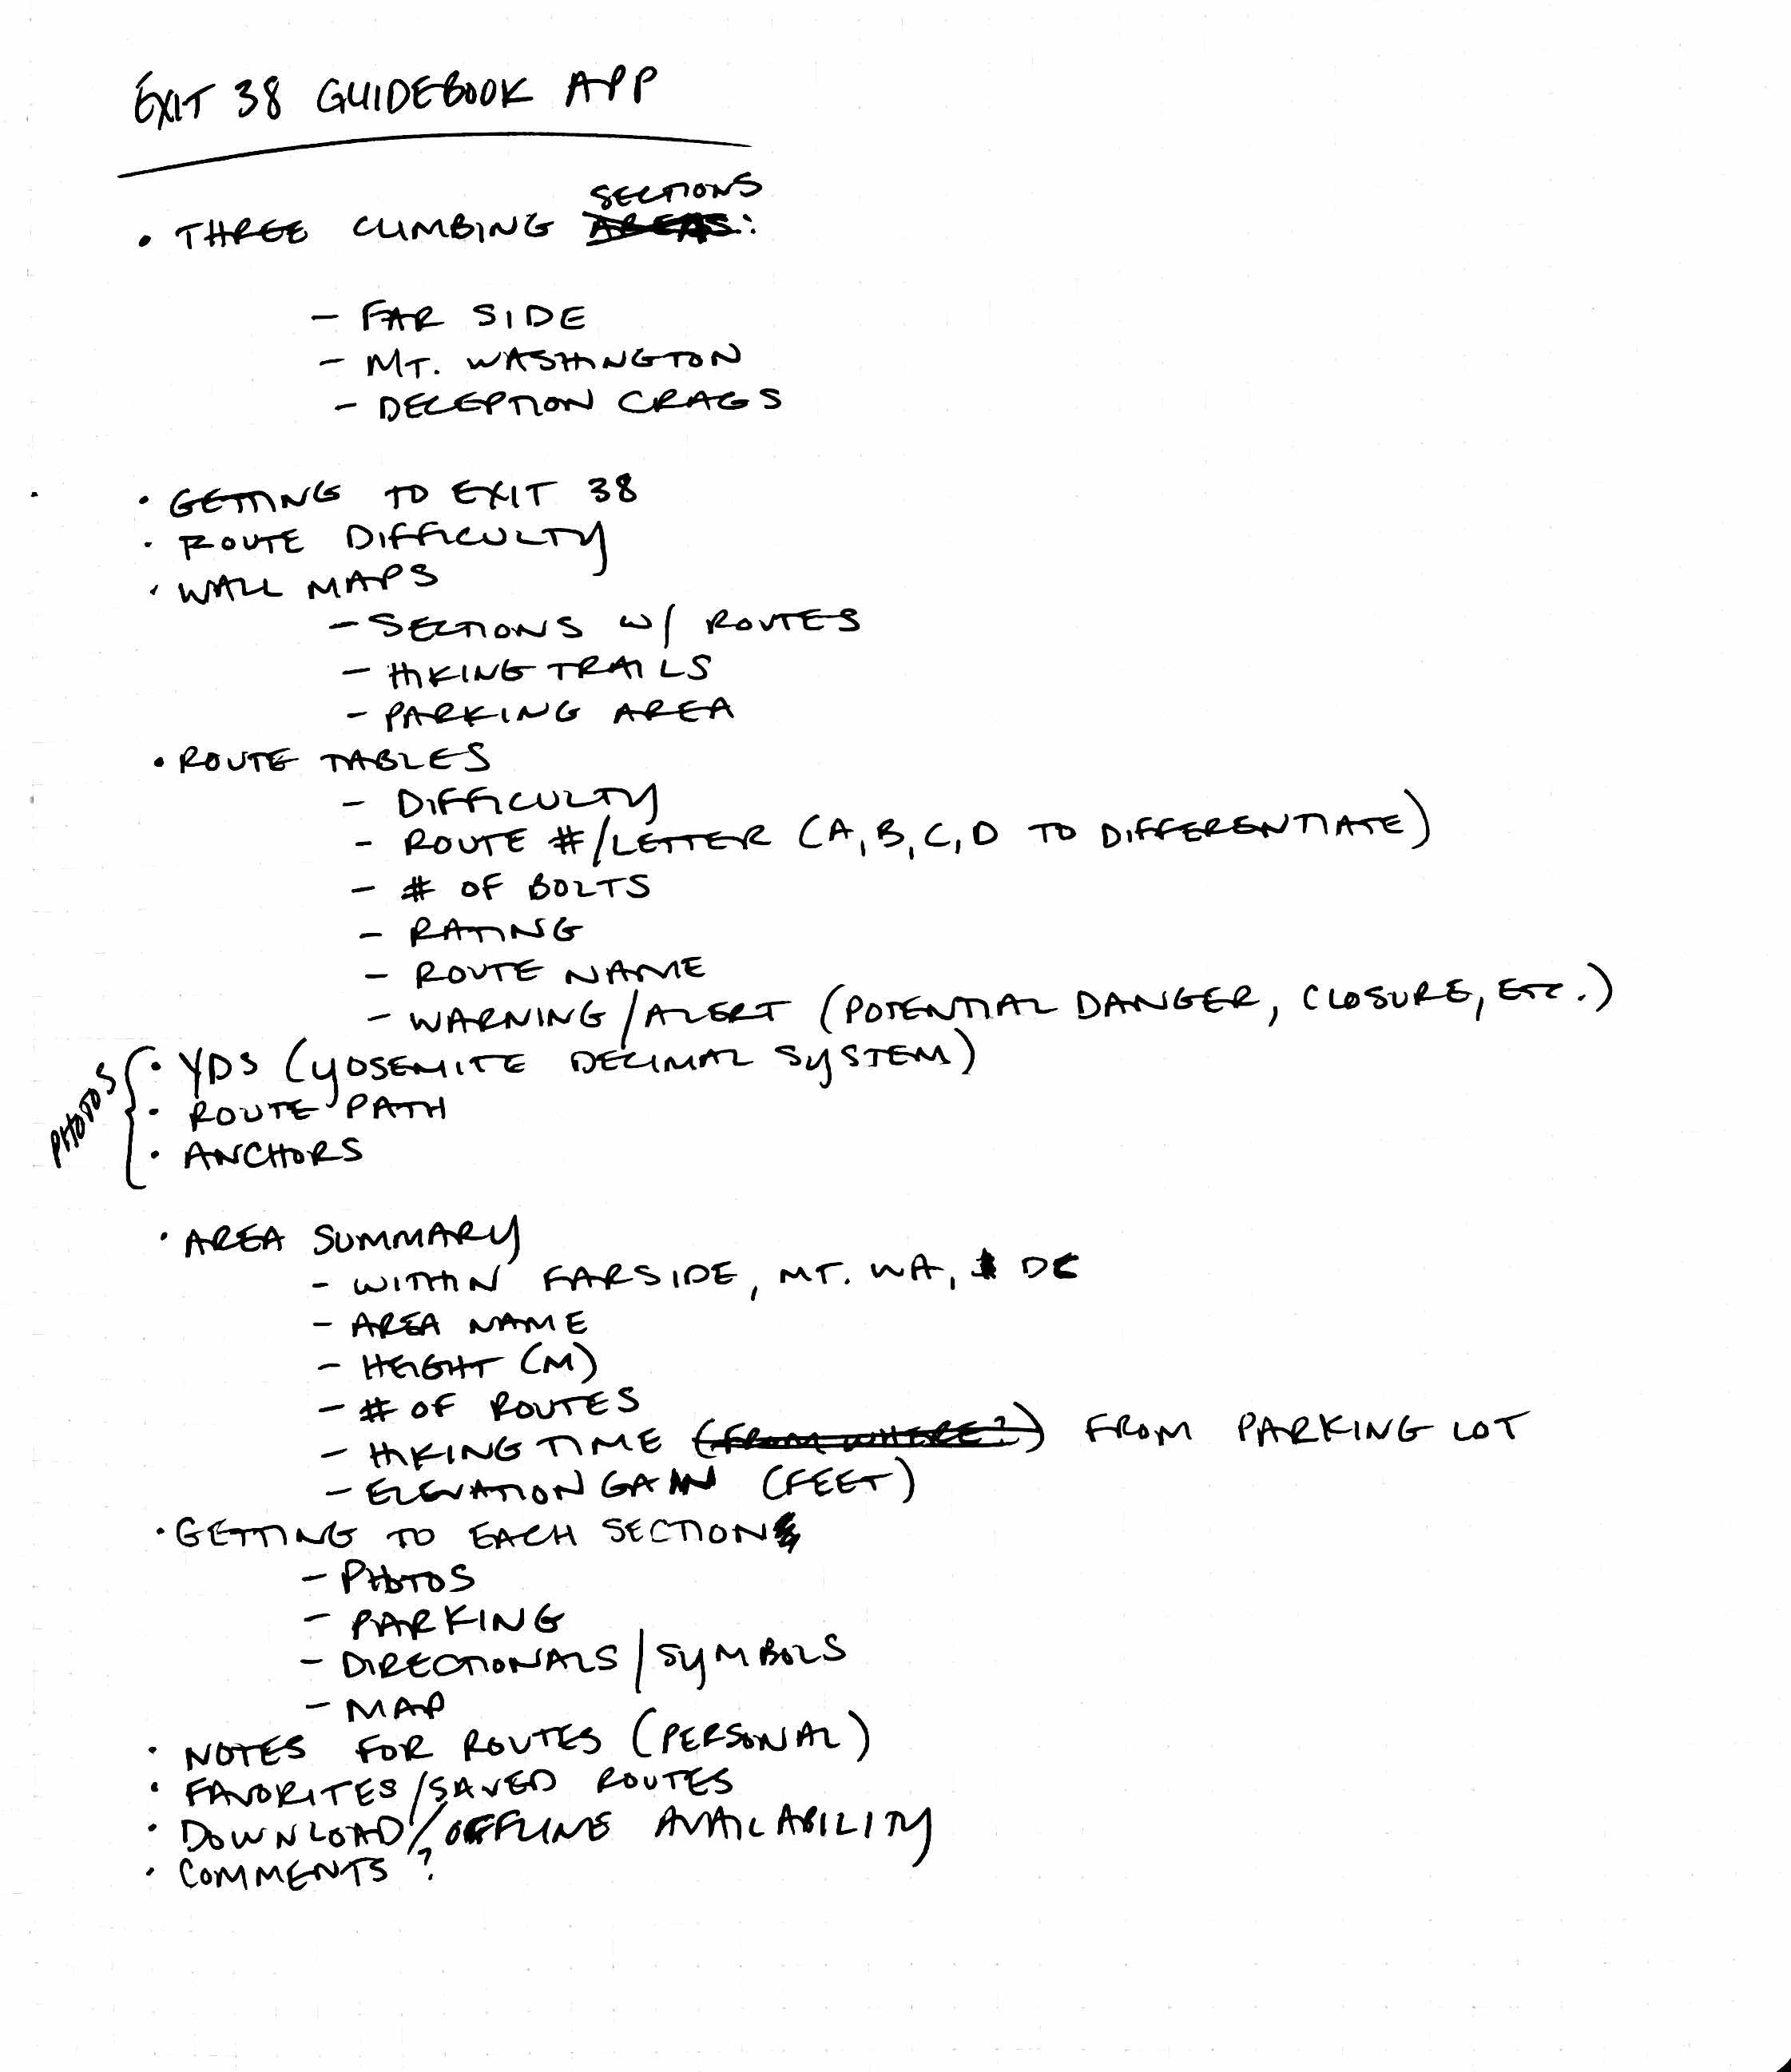 EXIT 38 GUIDEBOOK APP
SECTIONS
• THREE CLIMBING AREAS:
- FAR SIDE
- MT. WASHINGTON
- DECEPTION CRAGS
• GETTING TO EXIT 38
• ROUTE DIFFICULTY
• WALL MAPS
- SECTIONS W/ ROUTES
- HIKING TRAILS
- PARKING AREA
• ROUTE TABLES
- DIFFICULTY
- ROUTE #/LETTER (A, B, C, D TO DIFFERENTIATE)
- # OF BOLTS
- RATING
- ROUTE NAME
- WARNING/ALERT (POTENTIAL DANGER, CLOSURE, ETC.)
PHOTOS
• YDS (YOSEMITE DECIMAL SYSTEM)
• ROUTE PATH
• ANCHORS
• AREA SUMMARY
- WITHIN FARSIDE, MT. WA, & DC
- AREA NAME
- HEIGHT (M)
- # OF ROUTES
- HIKING TIME (FROM WHERE?) FROM PARKING LOT
- ELEVATION GAIN (FEET)
• GETTING TO EACH SECTION
- PHOTOS
- PARKING
- DIRECTIONALS/SYMBOLS
- MAP
• NOTES FOR ROUTES (PERSONAL)
• FAVORITES/SAVED ROUTES
• DOWNLOAD/OFFLINE AVAILABILITY
• COMMENTS?